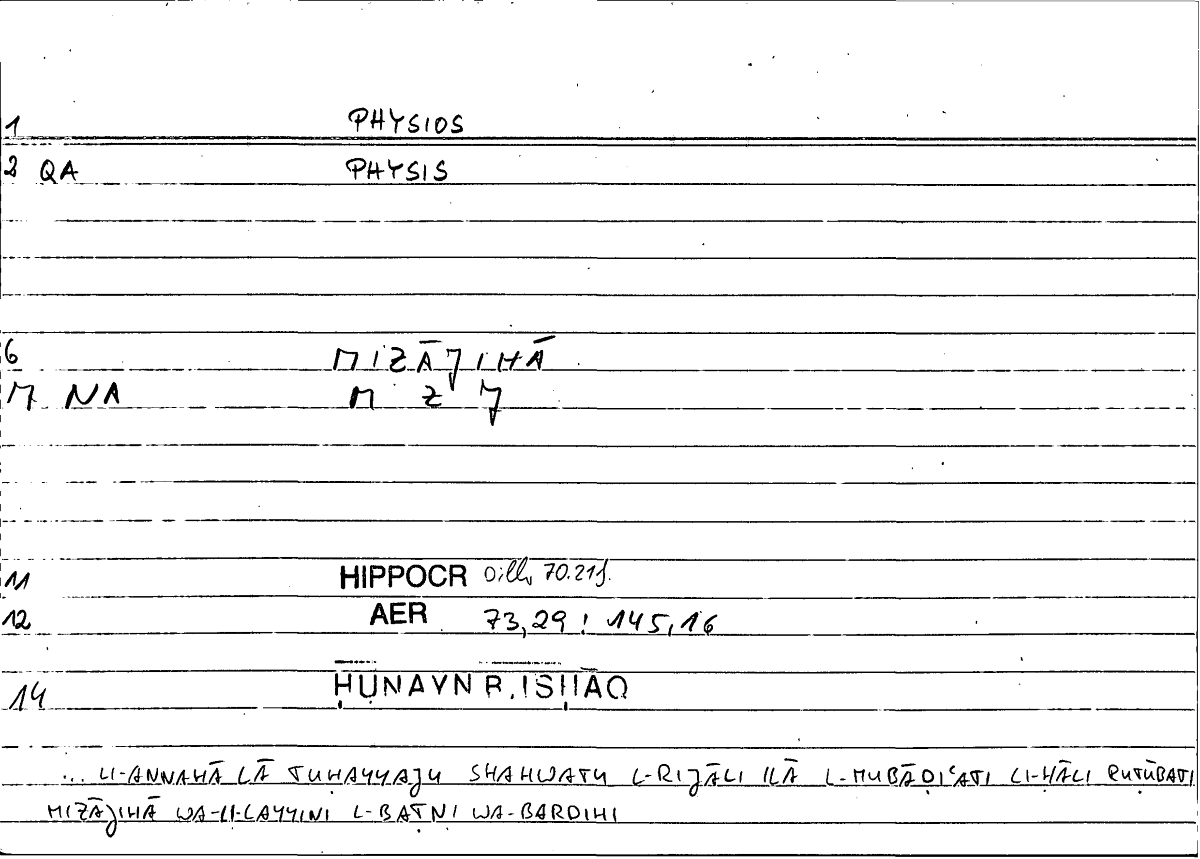 1 PHYSIOS
2 QA PHYSIS
6 MIZĀJIHĀ
M NA M Z J
11 HIPPOCR Diller 70.21f.
12 AER 73,29 ; 145,16
14 ḤUNAYN B. ISḤĀQ
... LI-ANNAHĀ LĀ TUHAYYAJU SHAHWATU L-RIJĀLI ILĀ L-MUBĀḌIʿATI LI-ḤĀLI RUṬŪBATI
MIZĀJIHĀ WA-LI-LAYYINI L-BAṬNI WA-BARDIHI